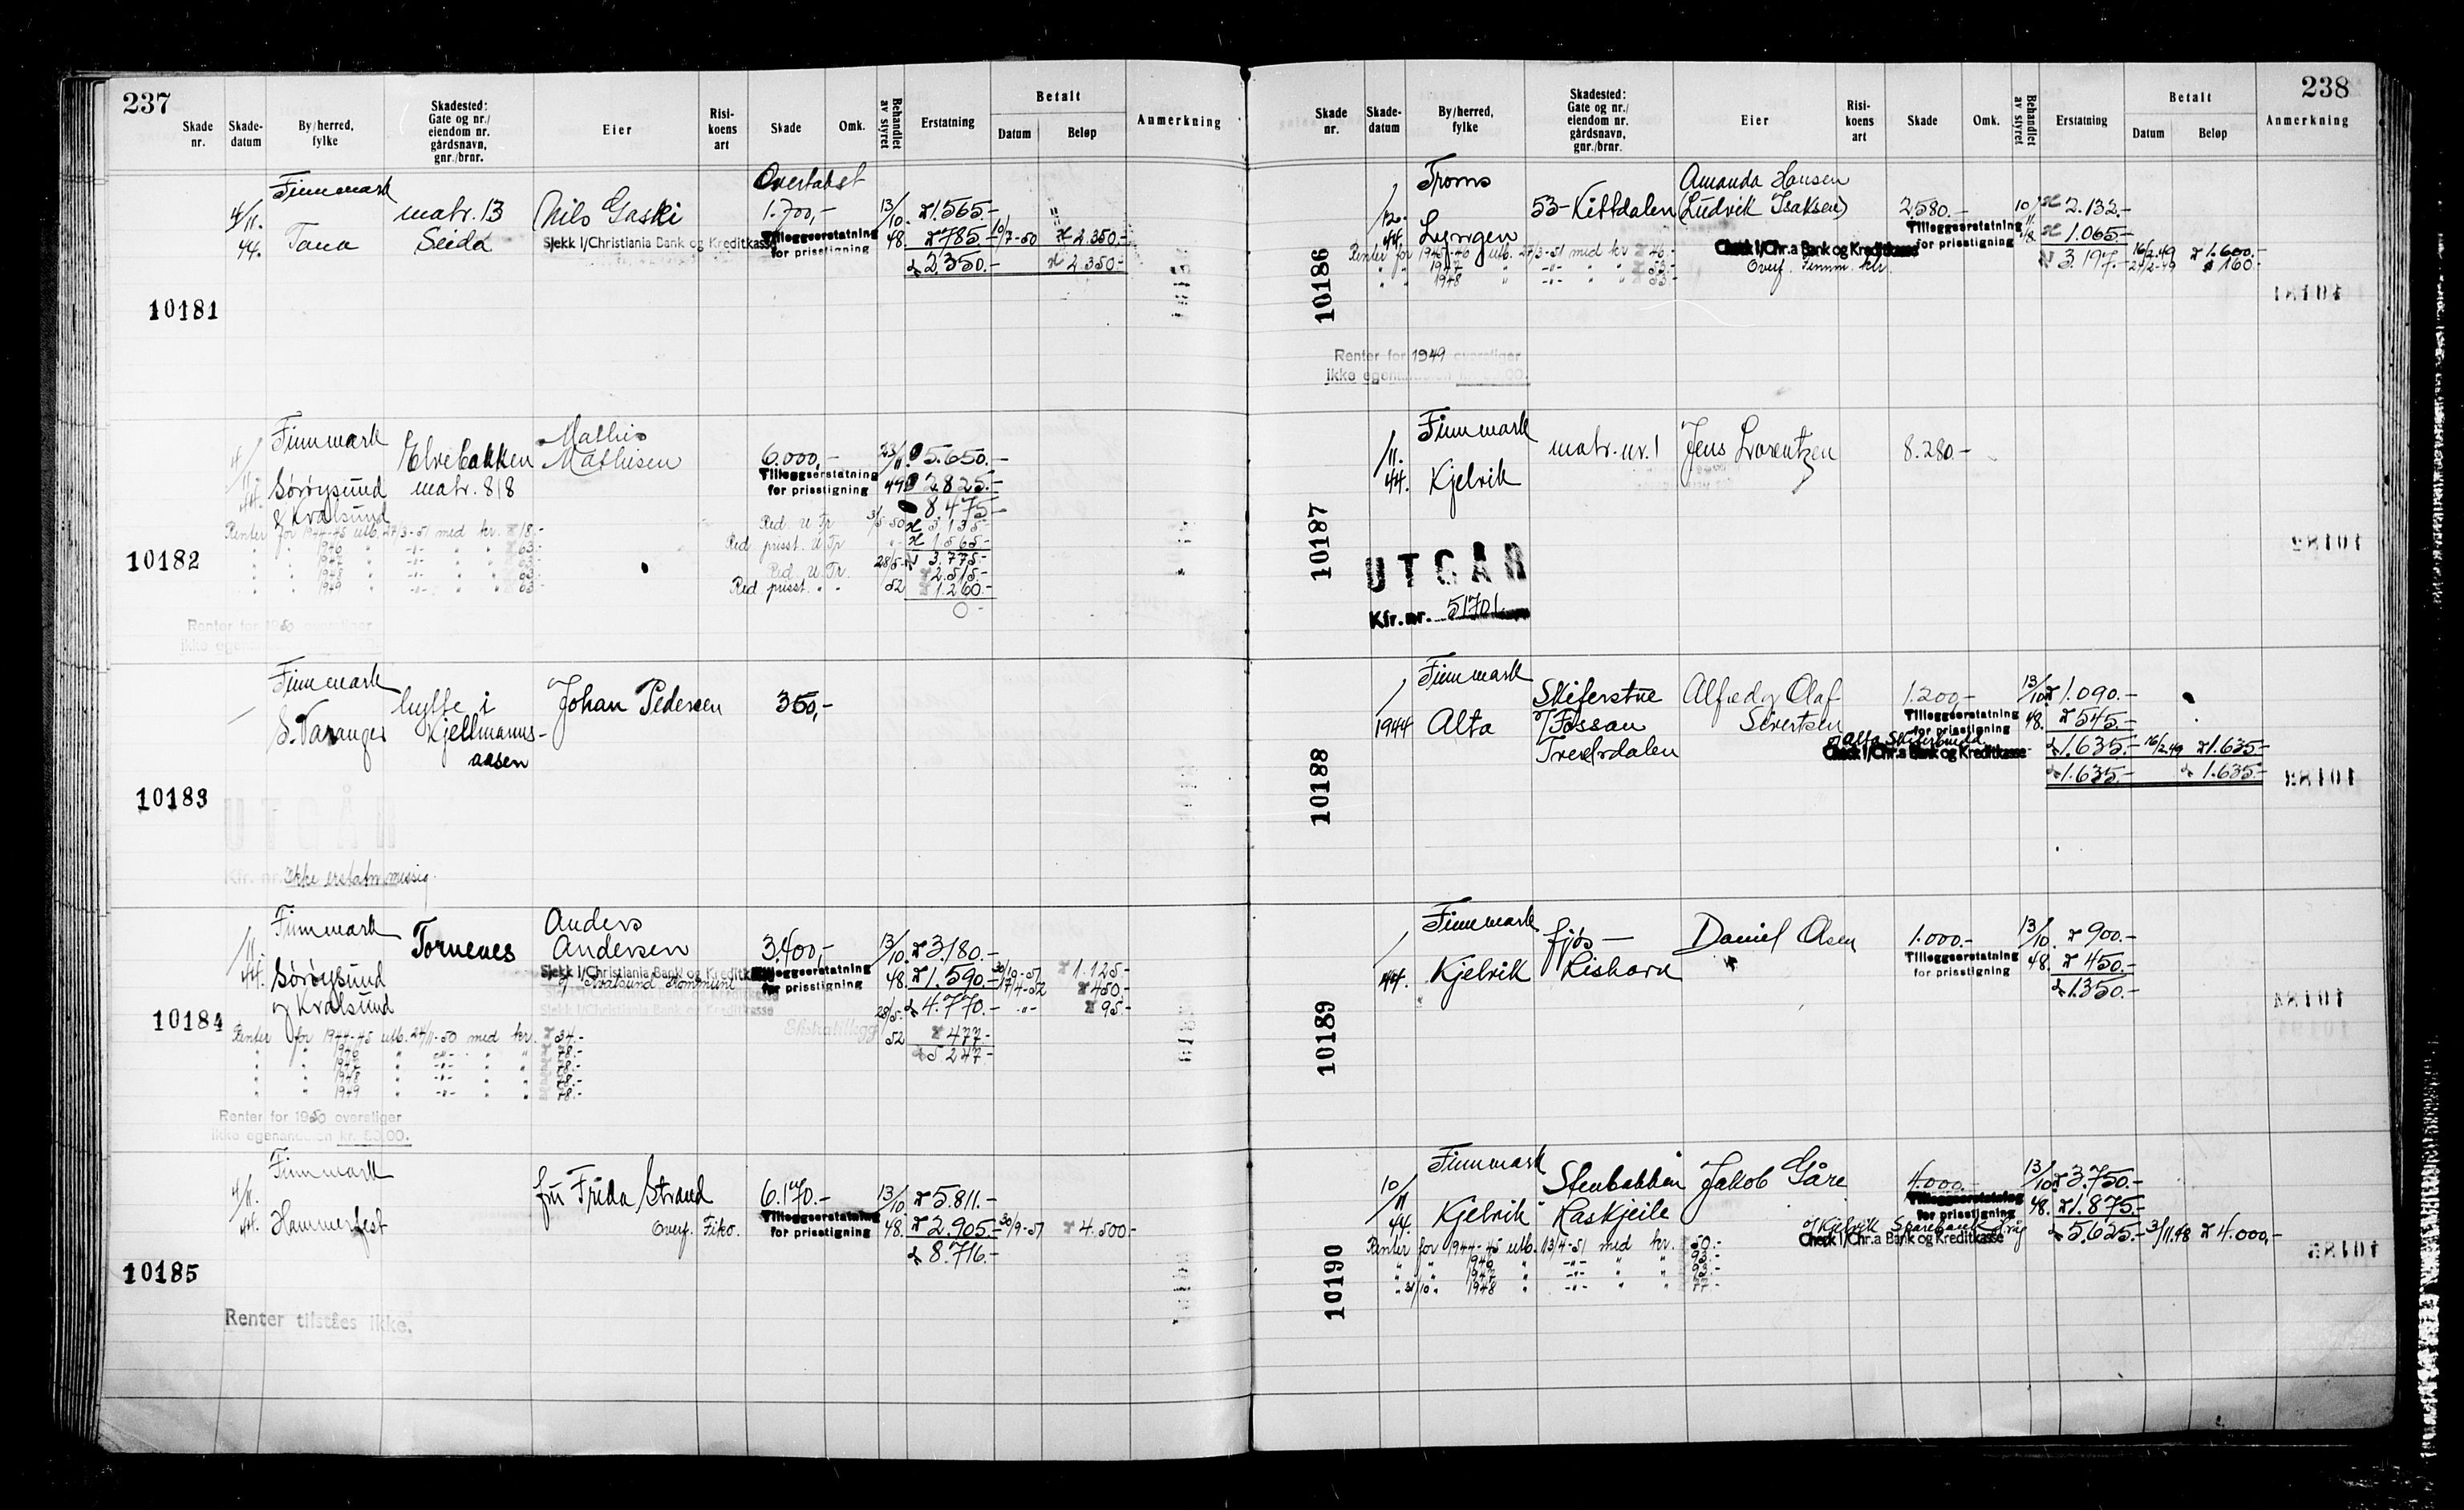 237
Skade nr.
Skade-datum
By/herred, fylke
Skadested: Gate og nr./ eiendom nr. gårdsnavn, gnr./brnr.
Eier
Risi-koens art
Skade
Omk.
Behandlet av styret
Erstatning
Betalt
Datum
Beløp
Anmerkning
Finnmark
4/11. 44. Tana
matr. 13
Seida
Nils Gaski
Sjekk 1/Christiania Bank og Kreditkasse
1.700,-
Tilleggserstatning
for prisstigning
13/10. 48.
1.565.-
785.- 10/7-50 2.350.-
2.350.- 2.350.-
10181
Finnmark
4/11. 44. Sørøysund
& Kvalsund
Elvebakken
matr. 818
Mathis
Mathisen
6.000,-
Tilleggserstatning
for prisstigning
23/11. 49
5.650.-
2.825.-
8.475.-
Renter for 1944-45 utb. 27/3-51 med kr. 18.-
" " 1946 " -"- " " 63.-
" " 1947 " -"- " " 63.-
" " 1948 " -"- " " 63.-
" " 1949 " -"- " " 63.-
Red. u Tr 3/5-50 3.135.-
Red. prisst. u Tr 1.565.-
28/5- 3.775.-
Red. u Tr. 2.515.-
Red. prisst. " " 52 1.260.-
0 -
10182
Renter for 1950 overstiger
Finnmark
S. Varanger
hytte i
Kjellmanns-
aasen
Johan Pedersen
350,-
10183
UTGÅR
Kfr. nr. Ikke erstatn.messig.
Finnmark
/11. 44. Sørøysund
og Kvalsund
Tornenes
Anders
Andersen
Sjekk 1/Christiania Bank og Kreditkasse
Kvalsund Kommune
3.400,-
Tilleggserstatning
for prisstigning
13/10. 48.
3.180.-
1.590.- 1.125.-
17/4-52 450.-
4.770.- -"- 95.-
Ekstratillegg 28/5. 52 477.-
5.247.-
10184
Renter for 1944-45 utb. 24/11-50 med kr. 34.-
" " 1946 " -"- " " 78.-
" " 1947 " -"- " " 78.-
" " 1948 " -"- " " 78.-
" " 1949 " -"- " " 78.-
Renter for 1950 overstiger
ikke egenandelen kr. 50,00.
Finnmark
4/11. 44. Hammerfest
fru Frida Strand
Overf. Fiko.
6.170.-
Tilleggserstatning
for prisstigning
13/10. 48.
5.811.-
2.905.- 4.500.-
8.716.-
10185
Renter tilståes ikke.
238
Skade nr.
Skade-datum
By/herred, fylke
Skadested: Gate og nr./ eiendom nr. gårdsnavn, gnr./brnr.
Eier
Risi-koens art
Skade
Omk.
Behandlet av styret
Erstatning
Betalt
Datum
Beløp
Anmerkning
Troms
/12. 44. Lyngen
53- Kittdalen
Amanda Hansen
(Ludvik Isaksen)
2580.-
Tilleggserstatning
for prisstigning
10/11
2.132.-
1.065.-
3.197.- 16/2.49 1.600.-
160.-
Check 1/Chr.a Bank og Kreditkasse
Overf. Finnm. ktr.
10186
Renter for 1949 overstiger
ikke egenandelen
Finnmark
/11. 44. Kjelvik
matr. nr. 1
Jens Lorentzen
8.280.-
10187
UTGÅR
Kfr. nr. 51701
Finnmark
/1944 Alta
Skiferstue
Fossan
Alfred og Olaf
Sivertsen
1.200.-
Tilleggserstatning
for prisstigning
Alta Skiferbrudd
Check 1/Chr.a Bank og Kreditkasse
13/10. 48.
1.090.-
545.-
1.635.- 16/2.49 1.635.-
1.635.- 1.635.-
10188
Finnmark
/44. Kjelvik
fjøs -
Rishavn
Daniel Olsen
1.000.-
Tilleggserstatning
for prisstigning
13/10. 48.
900.-
450.-
1.350.-
10189
Finnmark
10/11 44. Kjelvik
Stenbakken
Jakob Gåre
4.000.-
Tilleggserstatning
for prisstigning
13/10. 48.
3.750.-
1.875.-
5.625.- 3/11.48 4.000,-
Kjelvik Sparebank
Check 1/Chr.a Bank og Kreditkasse
Renter for 1944-45 utb. 13/4-51 med kr. 50.-
" " 1946 " -"- " " 93.-
" " 1947 " -"- " " 93.-
" 31/10 " 1948 " -"- " " 77.-
10190